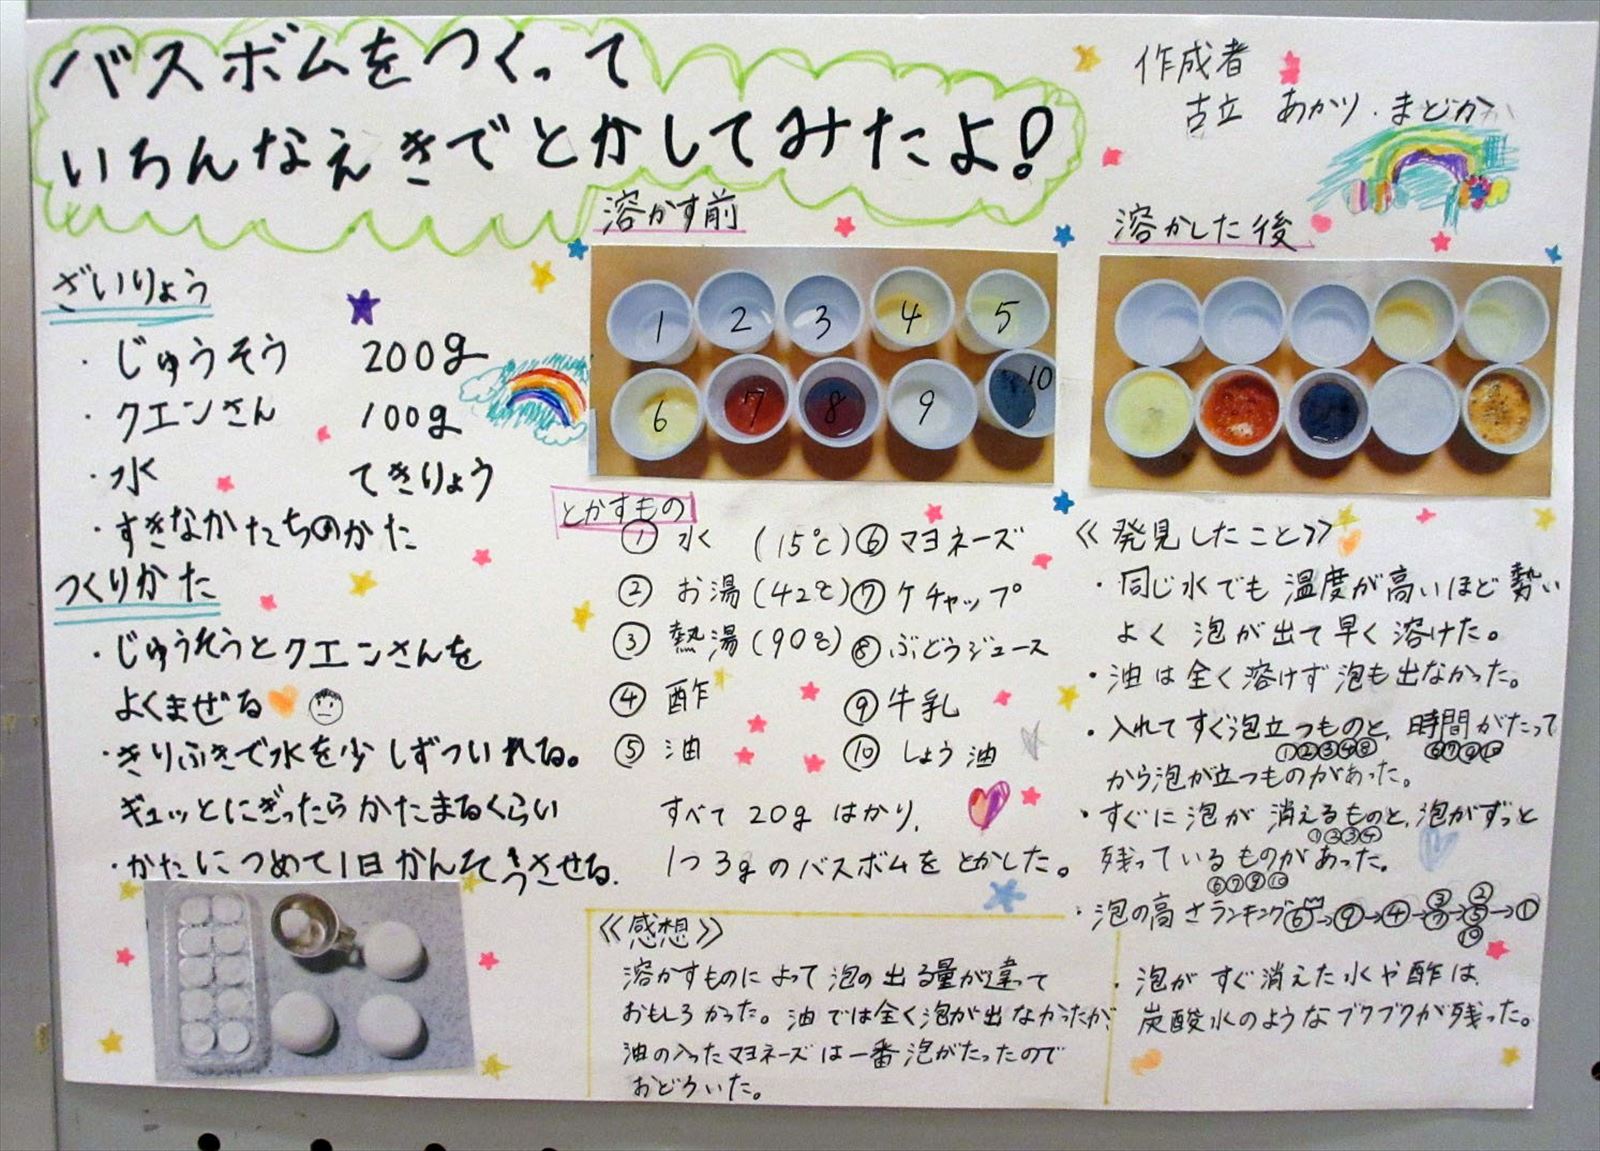 バスボムをつくって
いろんなえきでとかしてみたよ!
作成者
古立 あかり・まどか
ざいりょう
・じゅうそう 200g
・クエンさん 100g
・水 てきりょう
・すきなかたちのかた
つくりかた
・じゅうそうとクエンさんを
よくまぜる
・きりふきで水を少しずついれる。
ギュッとにぎったらかたまるくらい
・かたにつめて1日かんそうさせる.
溶かす前
1 2 3 4 5
6 7 8 9 10
溶かした後
とかすもの
① 水 (15℃) ⑥ マヨネーズ
② お湯(42℃) ⑦ ケチャップ
③ 熱湯(90℃) ⑧ ぶどうジュース
④ 酢 ⑨ 牛乳
⑤ 油 ⑩ しょう油
すべて 20g はかり,
1つ 3gのバスボムをとかした。
≪感想≫
溶かすものによって泡の出る量が違って
おもしろかった。油では全く泡が出なかったが
油の入ったマヨネーズは一番泡がたったので
おどろいた。
≪発見したこと≫
・同じ水でも温度が高いほど勢い
よく泡が出て早く溶けた。
・油は全く溶けず泡も出なかった。
・入れてすぐ泡立つものと、時間がたって
①②③④⑧ ⑥⑦⑨⑩
から泡が立つものがあった。
・すぐに泡が消えるものと、泡がずっと
①②③④
残っているものがあった。
⑥⑦⑨⑩
・泡の高さランキング⑥→⑨→④→
→①
・泡がすぐ消えた水や酢は、
炭酸水のようなブクブクが残った。